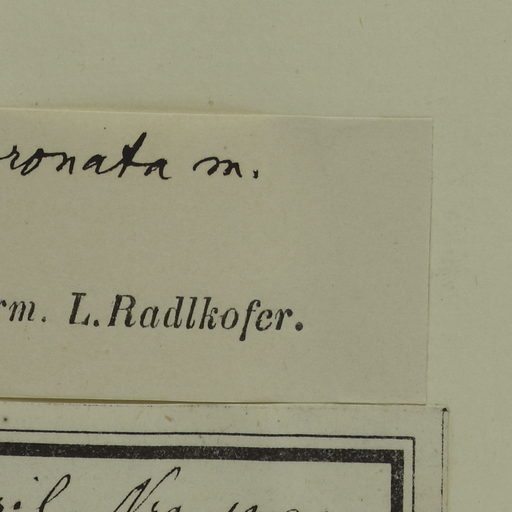 ronata m.
rm. L. Radlkofer.